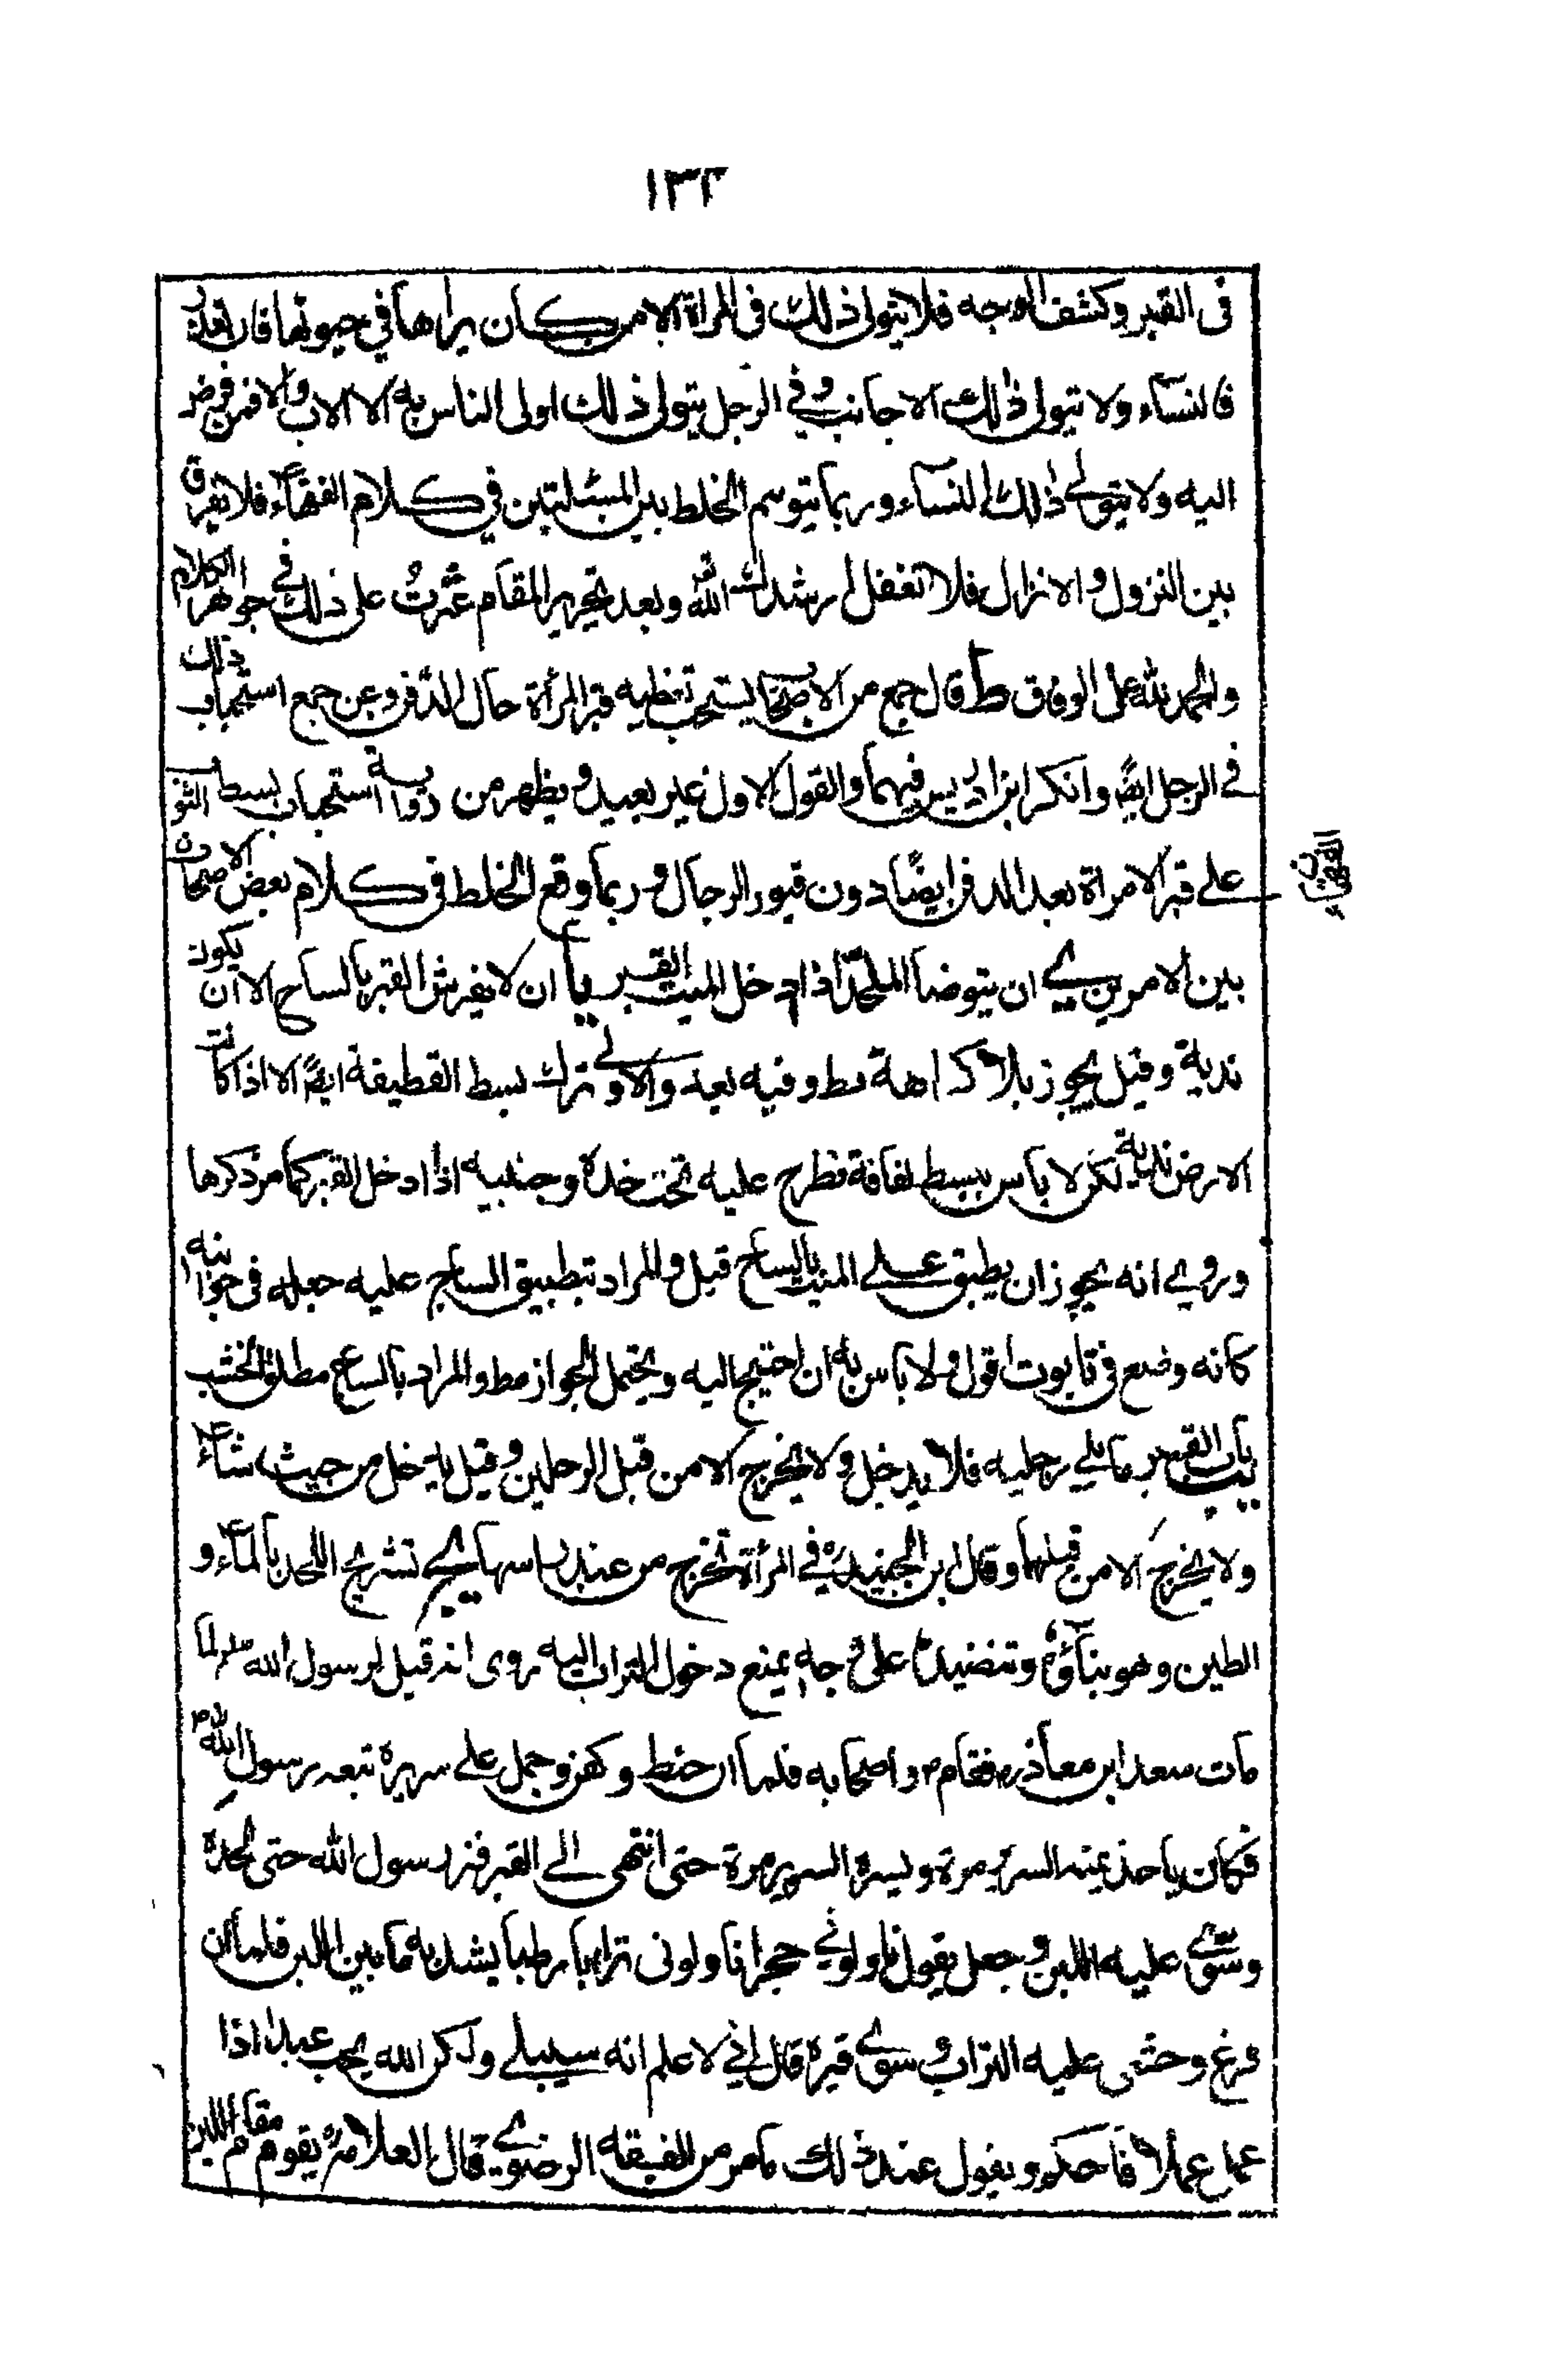 ١٣٢
فى القبر وكشف الوجه فلا يتولى ذلك فى المراة الا من كان يراها في حيوتها فان تعذر
فالنساء ولا يتولى ذلك الاجانب وفي الرجل يتولى ذلك اولى الناس به الا الاب والاقرب
اليه ولا يتولى ذلك النساء وربما يتوهم الخلط بين المسئلتين في كلام الفقهاء فلا تفرق
بين النزول والانزال فلا تغفل ارشدك الله وبعد تحرير المقام عثرت على ذلك في جواهر الكلام
والحمد لله على الوفاق ط قال جمع من الاصحاب يستحب تغطيه قبر المرأة حال الدفن وعن جمع استحباب ذلك
في الرجل ايضا وانكر ابن ادريس فيهما والقول الاول غير بعيد ويظهر من رواية استحباب بسط الثوب
على قبر الامراة بعد الدفن ايضًا دون قبور الرجال وربما وقع الخلط فى كلام بعض الاصحاب
بين الامرين ى ان يتوضا الملحد اذا ادخل الميت القبر يا ان لا يفرش القبر بالساج الا ان يكون
ندية وقيل يجوز بلا كراهة مط وفيه بعد والاولى ترك بسط القطيفة ايضا الا اذا كانت
الارض ندية لكن لا باس ببسط لفافة تطرح عليه تحت خده وجنبيه اذا ادخل القبر كما مر ذكرها
وروى انه يجوز ان يطبق على الميت بالساج قيل والمراد بتطبيق الساج عليه جعله فى جوانبه
كانه وضع فى تابوت اقول ولا باس به ان احتيج اليه ويحتمل الجواز مط والمراد بالساج مطلق الخشب
يب باب القبر مما يلى رجليه فلا يدخل ولا يخرج الا من قبل الرجلين وقيل يدخل من حيث شاء
ولا يخرج الا من قبلهما وقال ابن الجنيد ره في المرأة تخرج من عند راسها يج تشريج اللحد بالماء و
الطين وهو بناؤه وتنضيده على وجه يمنع دخول التراب اليه روى انه قيل لرسول الله ص لما
مات سعد ابن معاذ ره فقام ص واصحابه فلما ان حنط وكفن وحمل على سريره تبعه رسول الله ص
فكان ياخذ يمنة السرير مرة ويسرة السرير مرة حتى انتهى الى القبر فنزل رسول الله حتى لحده
وسوّى عليه اللبن وجعل يقول ناولوني حجرا ناولونى ترابا رطبا يشد به ما بين اللبن فلما ان
فرغ وحثى عليه التراب وسوى قبره قال اني لاعلم انه سيبلى ولكن الله يحب عبدا اذا
عمل عملا فاحكمه ويقول عند ذلك ما مر من الفقه الرضوي قال العلامة ره يقوم مقام اللبن